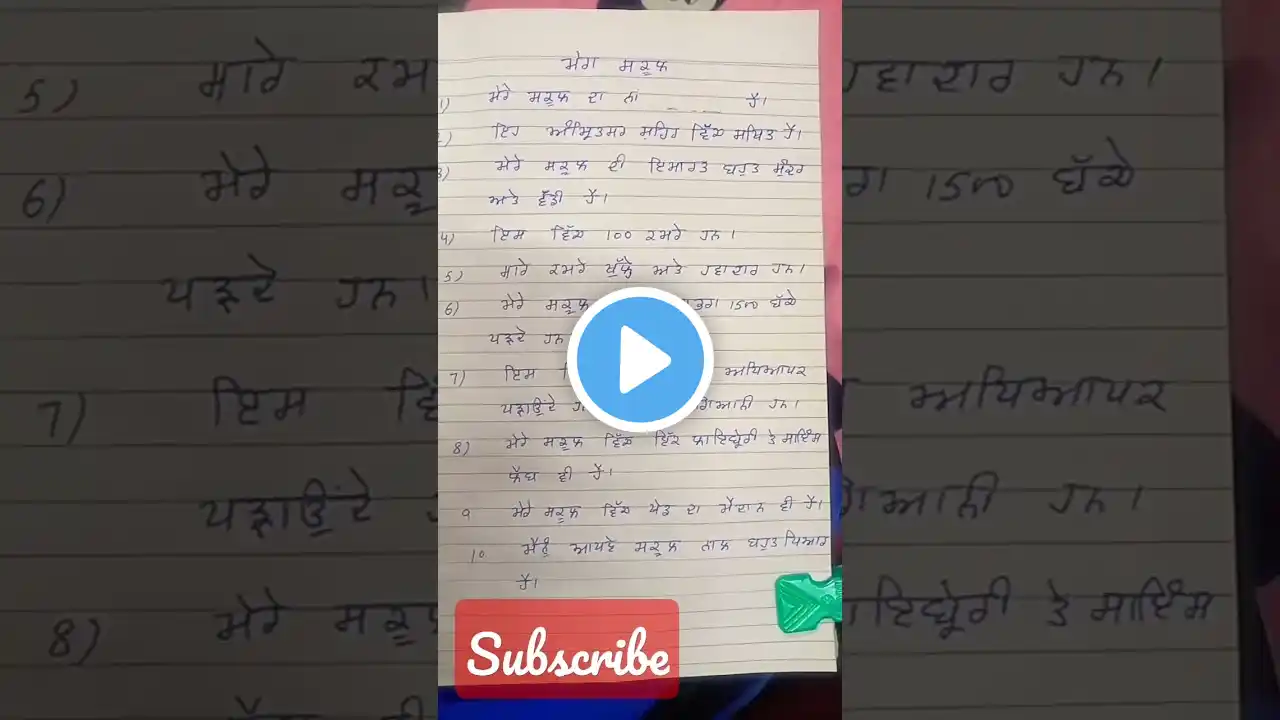 ਮੇਰਾ ਸਕੂਲ
1) ਮੇਰੇ ਸਕੂਲ ਦਾ ਨਾਂ _ _ _ _ ਹੈ।
2) ਇਹ ਅੰਮ੍ਰਿਤਸਰ ਸ਼ਹਿਰ ਵਿੱਚ ਸਥਿਤ ਹੈ।
3) ਮੇਰੇ ਸਕੂਲ ਦੀ ਇਮਾਰਤ ਬਹੁਤ ਸੁੰਦਰ
ਅਤੇ ਵੱਡੀ ਹੈ।
4) ਇਸ ਵਿੱਚ 100 ਕਮਰੇ ਹਨ।
5) ਸਾਰੇ ਕਮਰੇ ਖੁੱਲ੍ਹੇ ਅਤੇ ਹਵਾਦਾਰ ਹਨ।
6) ਮੇਰੇ ਸਕੂਲ 1500 ਬੱਚੇ
ਪੜ੍ਹਦੇ ਹਨ।
7) ਇਸ ਅਧਿਆਪਕ
ਪੜ੍ਹਾਉਂਦੇ ਹਨ।
8) ਮੇਰੇ ਸਕੂਲ ਵਿੱਚ ਇੱਕ ਲਾਇਬ੍ਰੇਰੀ ਤੇ ਸਾਇੰਸ
ਲੈਬ ਵੀ ਹੈ।
9 ਮੇਰੇ ਸਕੂਲ ਵਿੱਚ ਖੇਡ ਦਾ ਮੈਦਾਨ ਵੀ ਹੈ।
10 ਮੈਨੂੰ ਆਪਣੇ ਸਕੂਲ ਨਾਲ ਬਹੁਤ ਪਿਆਰ
ਹੈ।
Subscribe